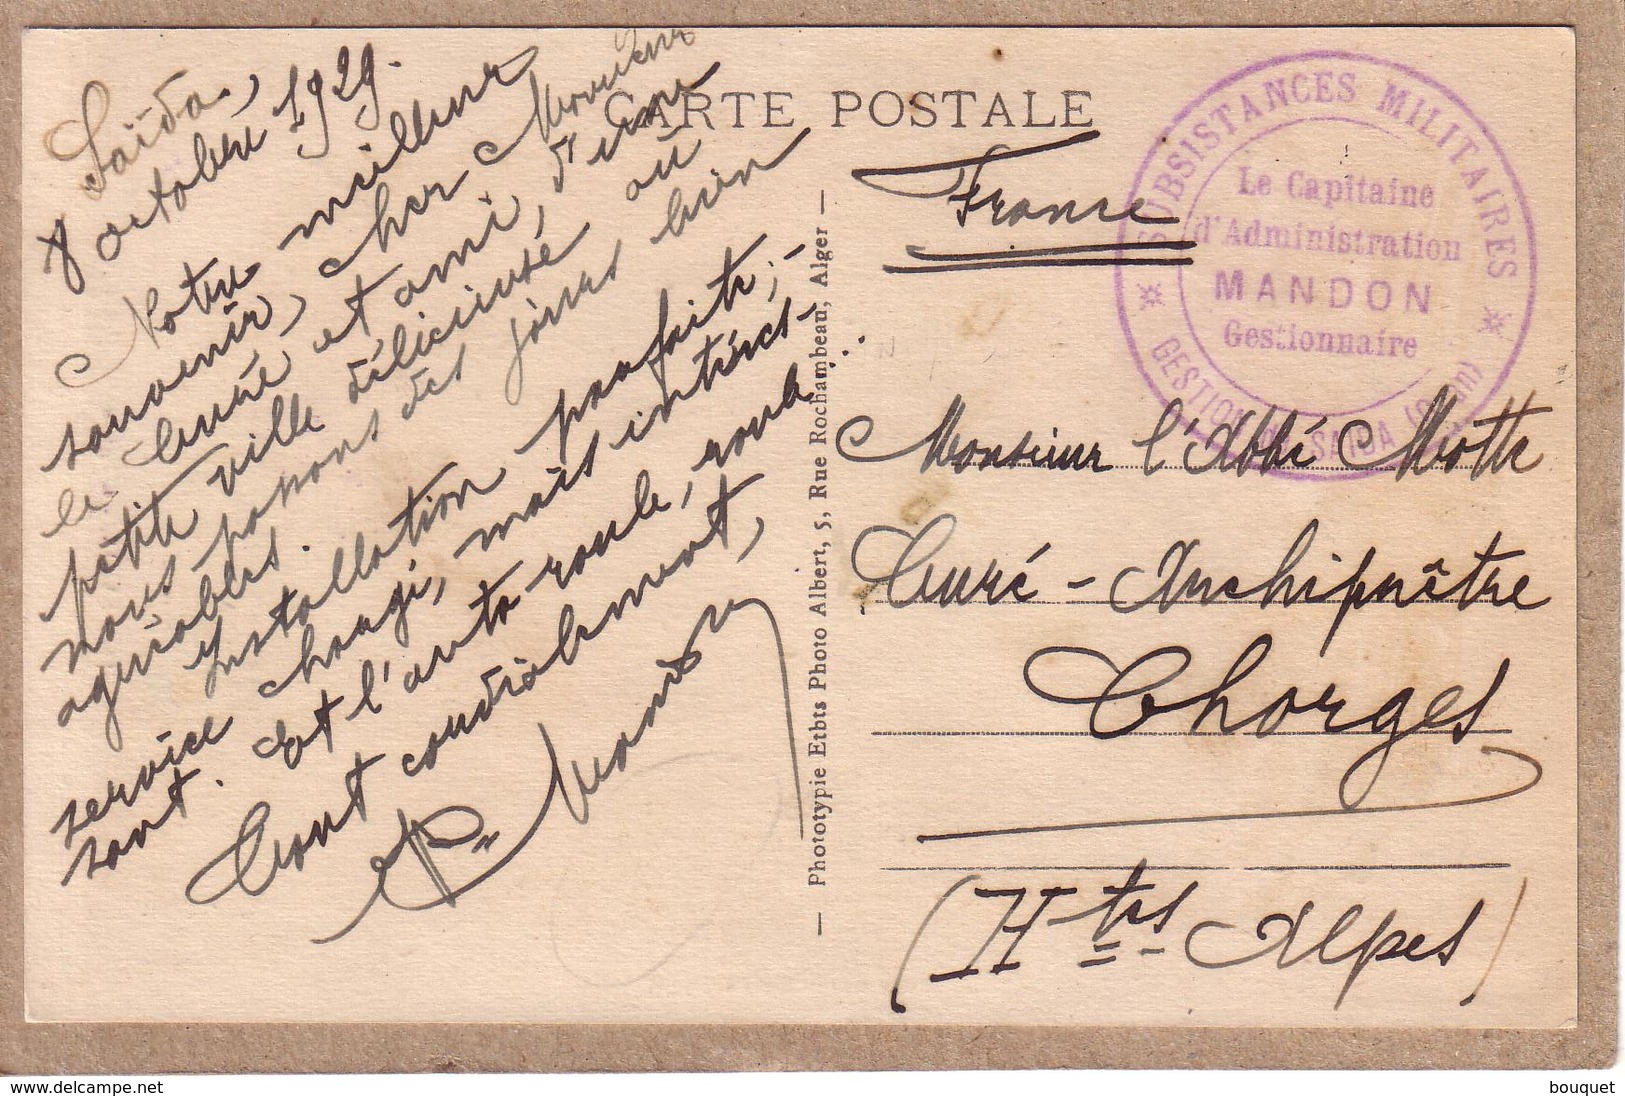 Saïda,
8 octobre 1929.
Notre meilleur
souvenir, cher Monsieur
le Curé et ami, d'une
petite ville délicieuse où
nous passons des jours bien
agréables.
Installation parfaite;-
service chargé, mais intéres-
sant. Et l'auto roule, roule...
Tout cordialement,
CARTE POSTALE
France
SUBSISTANCES MILITAIRES
Le Capitaine
d'Administration
MANDON
Gestionnaire
GESTION DE SAIDA (Oran)
Monsieur l'Abbé Motte
Curé-Archiprêtre
Chorges
(Htes-Alpes)
— Phototypie Etbts Photo Albert, 5, Rue Rochambeau, Alger —
delcampe.net
bouquet